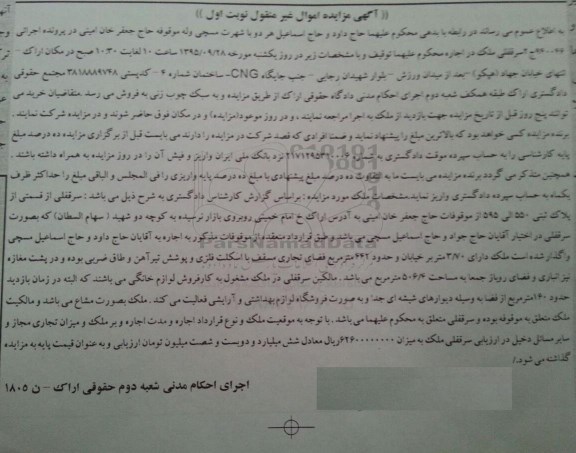 (( آگهی مزایده اموال غیر منقول نوبت اول ))
به اطلاع عموم می رساند در رابطه با بدهی محکوم علیهما حاج داود و حاج اسماعیل هر دو با شهرت مسچی وله موقوفه حاج جعفر خان امینی در پرونده اجرائی
سرقفلی ملک در اجاره محکوم علیهما توقیف و با مشخصات زیر در روز یکشنبه مورخه ۱۳۹۵/۰۹/۲۸ ساعت ۱۰ لغایت ۱۰:۳۰ صبح در مکان اراک -
انتهای خیابان جهاد (هپکو) - بعد از میدان ورزش - بلوار شهیدان رجایی - جنب جایگاه CNG- ساختمان شماره ۴ - کدپستی ۳۸۱۸۸۸۹۷۴۸ مجتمع حقوقی
دادگستری اراک طبقه همکف شعبه دوم اجرای احکام مدنی دادگاه حقوقی اراک از طریق مزایده و به سبک چوب زنی به فروش می رسد .متقاضیان خرید می
توانند پنج روز قبل از تاریخ مزایده جهت بازدید از ملک به اجرا مراجعه نمایند . و در روز موعود(مزایده) و در مکان فوق حاضر شوند و در مزایده شرکت نمایند .
برنده مزایده کسی خواهد بود که بالاترین مبلغ را پیشنهاد نماید و ضمنا افرادی که قصد شرکت در مزایده را دارند می بایست قبل از برگزاری مزایده ده درصد مبلغ
پایه کارشناسی را به حساب سپرده موقت دادگستری به شماره نزد بانک ملی ایران واریز و فیش آن را در روز مزایده به همراه داشته باشند .
همچنین متذکر می گردد برنده مزایده می بایست ما به التفاوت ده درصد مبلغ پیشنهادی با مبلغ ده درصد پایه واریزی را فی المجلس و الباقی مبلغ را حداکثر ظرف
یکماه به حساب سپرده دادگستری واریز نماید.مشخصات ملک مورد مزایده : براساس گزارش کارشناس دادگستری به شرح ذیل می باشد : سرقفلی از قسمتی از
پلاک ثبتی ۵۵۰ الی ۵۹۵ از موقوفات حاج جعفر خان امینی به آدرس اراک خ امام خمینی روبروی بازار نرسیده به کوچه دو شهید ( سهام السطان) که بصورت
سرقفلی در اختیار آقایان حاج جواد و حاج اسماعیل مسچی می باشد و طبق قرارداد منعقده از موقوفات مذکور به اجاره به آقایان حاج داود و حاج اسماعیل مسچی
واگذار شده است ملک دارای ۳/۷۰ متر بر خیابان و حدود ۴۴۲ مترمربع فضای تجاری مسقف با اسکلت فلزی و پوشش تیرآهن و طاق ضربی بوده و در پشت مغازه
نیز انباری و فضای روباز جمعا به مساحت ۵۰۶/۴ مترمربع می باشد . مالکین سرقفلی در ملک مشغول به کار فروش لوازم خانگی می باشند که البته در زمان بازدید
حدود ۱۶۰ مترمربع از فضا به وسیله دیوارهای شیشه ای جدا و به صورت فروشگاه لوازم بهداشتی و آرایشی فعالیت می کند . ملک بصورت مشاع می باشد و مالکیت
ملک متعلق به موقوفه بوده و سرقفلی متعلق به محکوم علیهما می باشد . با توجه به موقعیت ملک و نوع قرارداد اجاره و مدت اجاره و بر ملک و میزان تجاری مجاز و
سایر مسائل دخیل در ارزیابی سرقفلی ملک به میزان ۶۲۶۰۰۰۰۰۰۰۰ریال معادل شش میلیارد و دویست و شصت میلیون تومان ارزیابی و به عنوان قیمت پایه به مزایده
گذاشته می شود./
اجرای احکام مدنی شعبه دوم حقوقی اراک - ن ۱۸۰۵
ParsNamadData